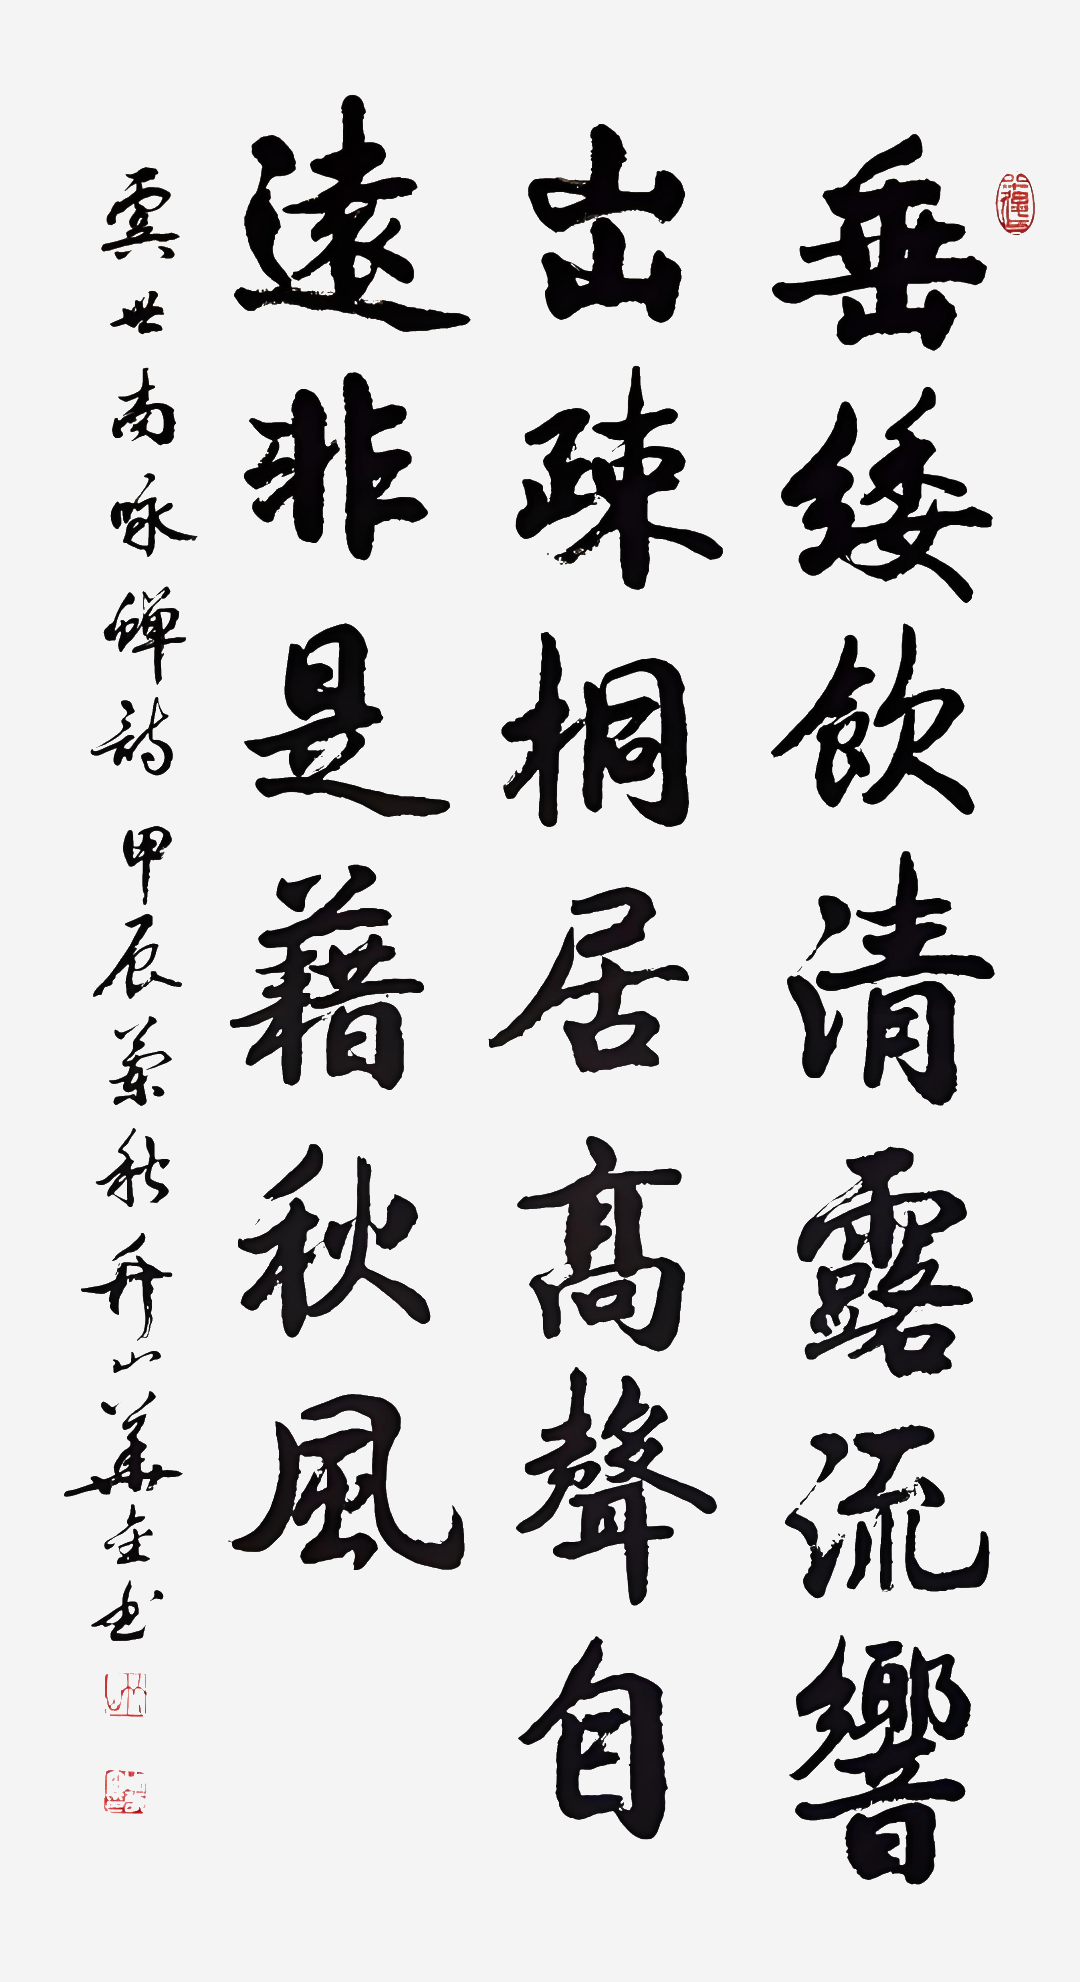 垂緌飲清露流響
出疎桐居高聲自
遠非是藉秋風
虞世南咏蟬詩 甲辰蘭秋舟山華金书